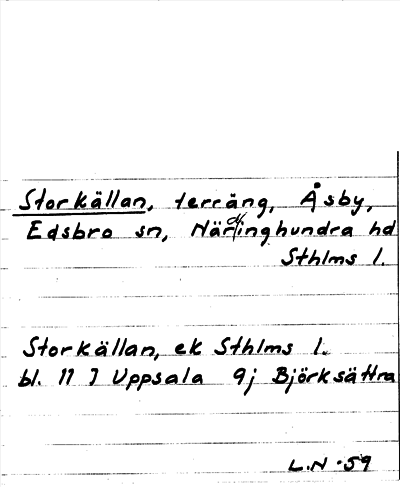 Storkällan, terräng, Åsby,
Edsbro sn, Närdinghundra hd
Sthlms l.
Storkällan, ek Sthlms l.
bl. 11 I Uppsala 9j Björksättra
L.N -59